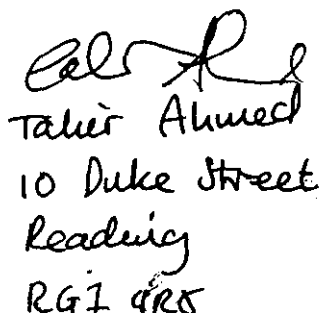 Tahir Ahmed
10 Duke Street
Reading
RG1 4RS